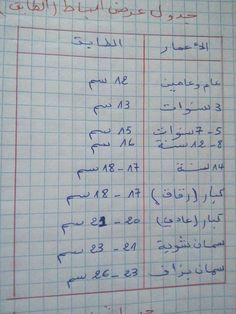 جدول عرض الباط (الطابق)
الأعمار الطابق
عام وعامين 12 سم
3 سنوات 13 سم
5-7 سنوات 15 سم
8-12 سنة 16 سم
14 سنة 17-18 سم
كبار (رقاق) 17-18 سم
كبار (عادي) 20-21 سم
سمان شوية 21-23 سم
سمان بزاف 23-26 سم